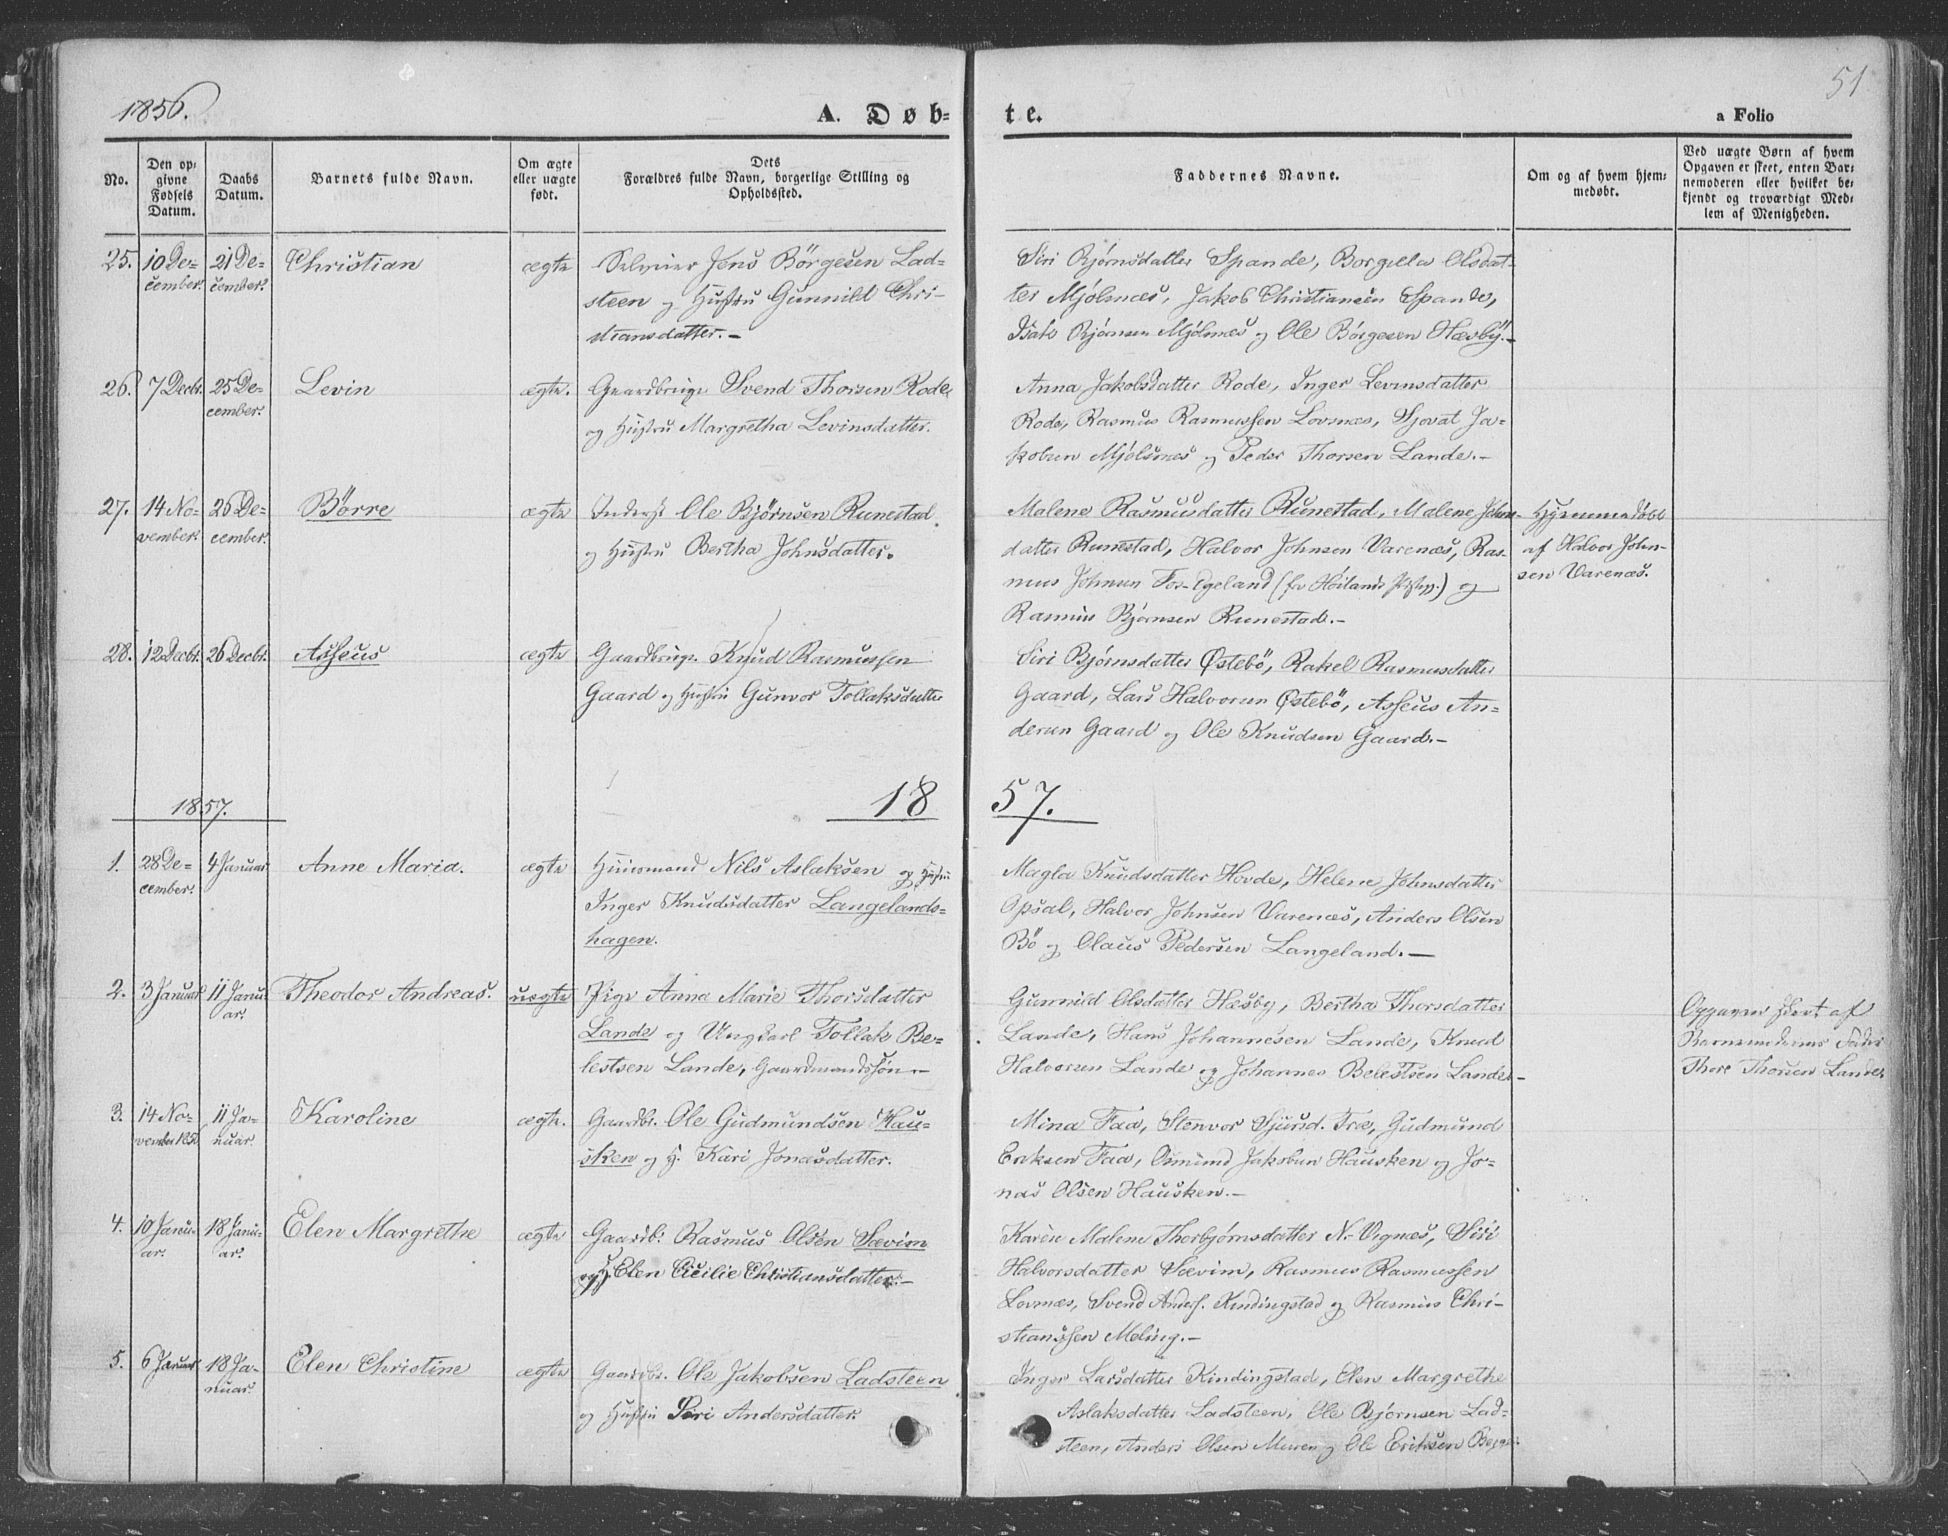 1856.
A. Døb=
te.
51
a Folio
No.
Den op=
givne
Fødsels
Datum.
Daabs
Datum.
Barnets fulde Navn.
Om ægte
eller uægte
født.
Dets
Forældres fulde Navn, borgerlige Stilling og
Opholdssted.
Faddernes Navne.
Om og af hvem hjem=
medøbt.
Ved uægte Børn af hvem
Opgaven er skeet, enten Bar=
nemoderen eller hvilket be=
kjendt og troværdigt Med=
lem af Menigheden.
25. 10 De=
cember.
21 De=
cember.
Christian
ægte
Selveier Jens Börgesen Lad=
steen og Hustru Gunnild Chri-
stiansdatter.-
Siri Bjørnsdatter Spande, Borgilla Olsdat=
ter Mjølsnæs, Jakob Christiansen Spande,
Isak Bjørnsen Mjølsnæs og Ole Börgesen Hæsbÿ.-
26. 7 Decbr.
25 De=
cember.
Levin
ægte.
Gaardbruger Svend Thorsen Rode
og Hustru Margretha Levinsdatter.
Anna Jakobsdatter Rode, Inger Levinsdatter
Rode, Rasmus Rasmussen Lovsnæs, Sjovat Ja=
kobsen Mjølsnæs og Peder Thorsen Lande.-
27. 14 No=
vember.
26 De=
cember.
Börre
ægte
Inderst Ole Bjørnsen Runestad
og Hustru Bertha Johnsdatter.
Malene Rasmusdatter Runestad, Malene Johns-
datter Runestad, Halvor Johnsen Varenæs, Ras-
mus Johnsen Fos-Egeland (fr Høilands Pgjd.) og
Rasmus Bjørnsen Runestad.-
Hjemmedøbt
af Halvor John-
sen Varenæs.
28. 12 Decbr.
26 Decbr.
Asseus
ægte
Gaardbruger Knud Rasmussen
Gaard og Hustru Gunvor Tollaksdatter
Siri Bjørnsdatter Østebö, Rakel Rasmusdatter
Gaard, Lars Halvorsen Østebö, Asseus An=
dersen Gaard og Ole Knudsen Gaard.-
1857.
18 57.
1. 28 De=
cember.
4 Januar
Anne Maria.
ægte
Huusmand Nils Aslaksen og Hustru
Inger Knudsdatter Langelands=
hagen.
Magla Knudsdatter Hovde, Helene Johnsdatter
Opsal, Halvor Johnsen Varenæs, Anders Olsen
Bö og Olaus Pedersen Langeland.-
2. 3 Januar
11 Janu=
ar.
Theodor Andreas.
uægte
Pige Anna Marie Thorsdatter
Lande og Ungkarl Tollak Be=
lestsen Lande, Gaardmandssøn.-
Gunnild Olsdatter Hæsby, Bertha Thorsdatter
Lande, Hans Johannesen Lande, Knud
Halvorsen Lande og Johannes Belestsen Lande.-
Opgaven skeet af
Barnemoderens Fader
Thore Thorsen Lande.
3. 14 No=
vember 1856
11 Ja=
nuar.
Karoline
ægte.
Gaardbr. Ole Gudmundsen Hau=
sken og H. Kari Jonasdatter.
Mina Faa, Stenvor Sjursd. Træ, Gudmund
Eriksen Faa, Osmund Jakobsen Hausken og Jo=
nas Olsen Hausken.-
4. 10 Janu=
ar.
18 Janu=
ar.
Elen Margrethe
ægte
Gaardb. Rasmus Olsen Sævim
og H. Elen Cicilie Christiansdatter.-
Karen Malene Thorbjørnsdatter N. Vignæs, Siri
Halvorsdatter Sævim, Rasmus Rasmussen
Lovnæs, Svend Anders. Kindingstad og Rasmus Chri-
stianssen Meling.-
5. 6 Januar
18 Ja=
nuar.
Elen Christine
ægte
Gaardbr. Ole Jakobsen Ladsteen
og Hustru Siri Andersdatter.
Inger Larsdatter Kindingstad, Elen Margrethe
Aslaksdatter Ladsteen, Ole Bjørnsen Lad=
steen, Anders Olsen Muren og Ole Eriksen